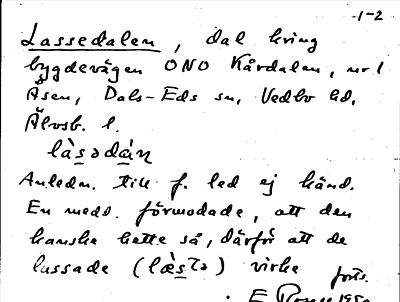 -1-2
Lassedalen, dal kring
bygdevägen ONO Kårdalen, nr 1
Åsen, Dals-Eds sn, Vedbo hd,
Älvsb. l.
làsədàn
Anledn. till f. led ej känd.
En medd. förmodade, att den
kanske hette så, därför att de
lassade (læ̀stə) virke
forts.
E